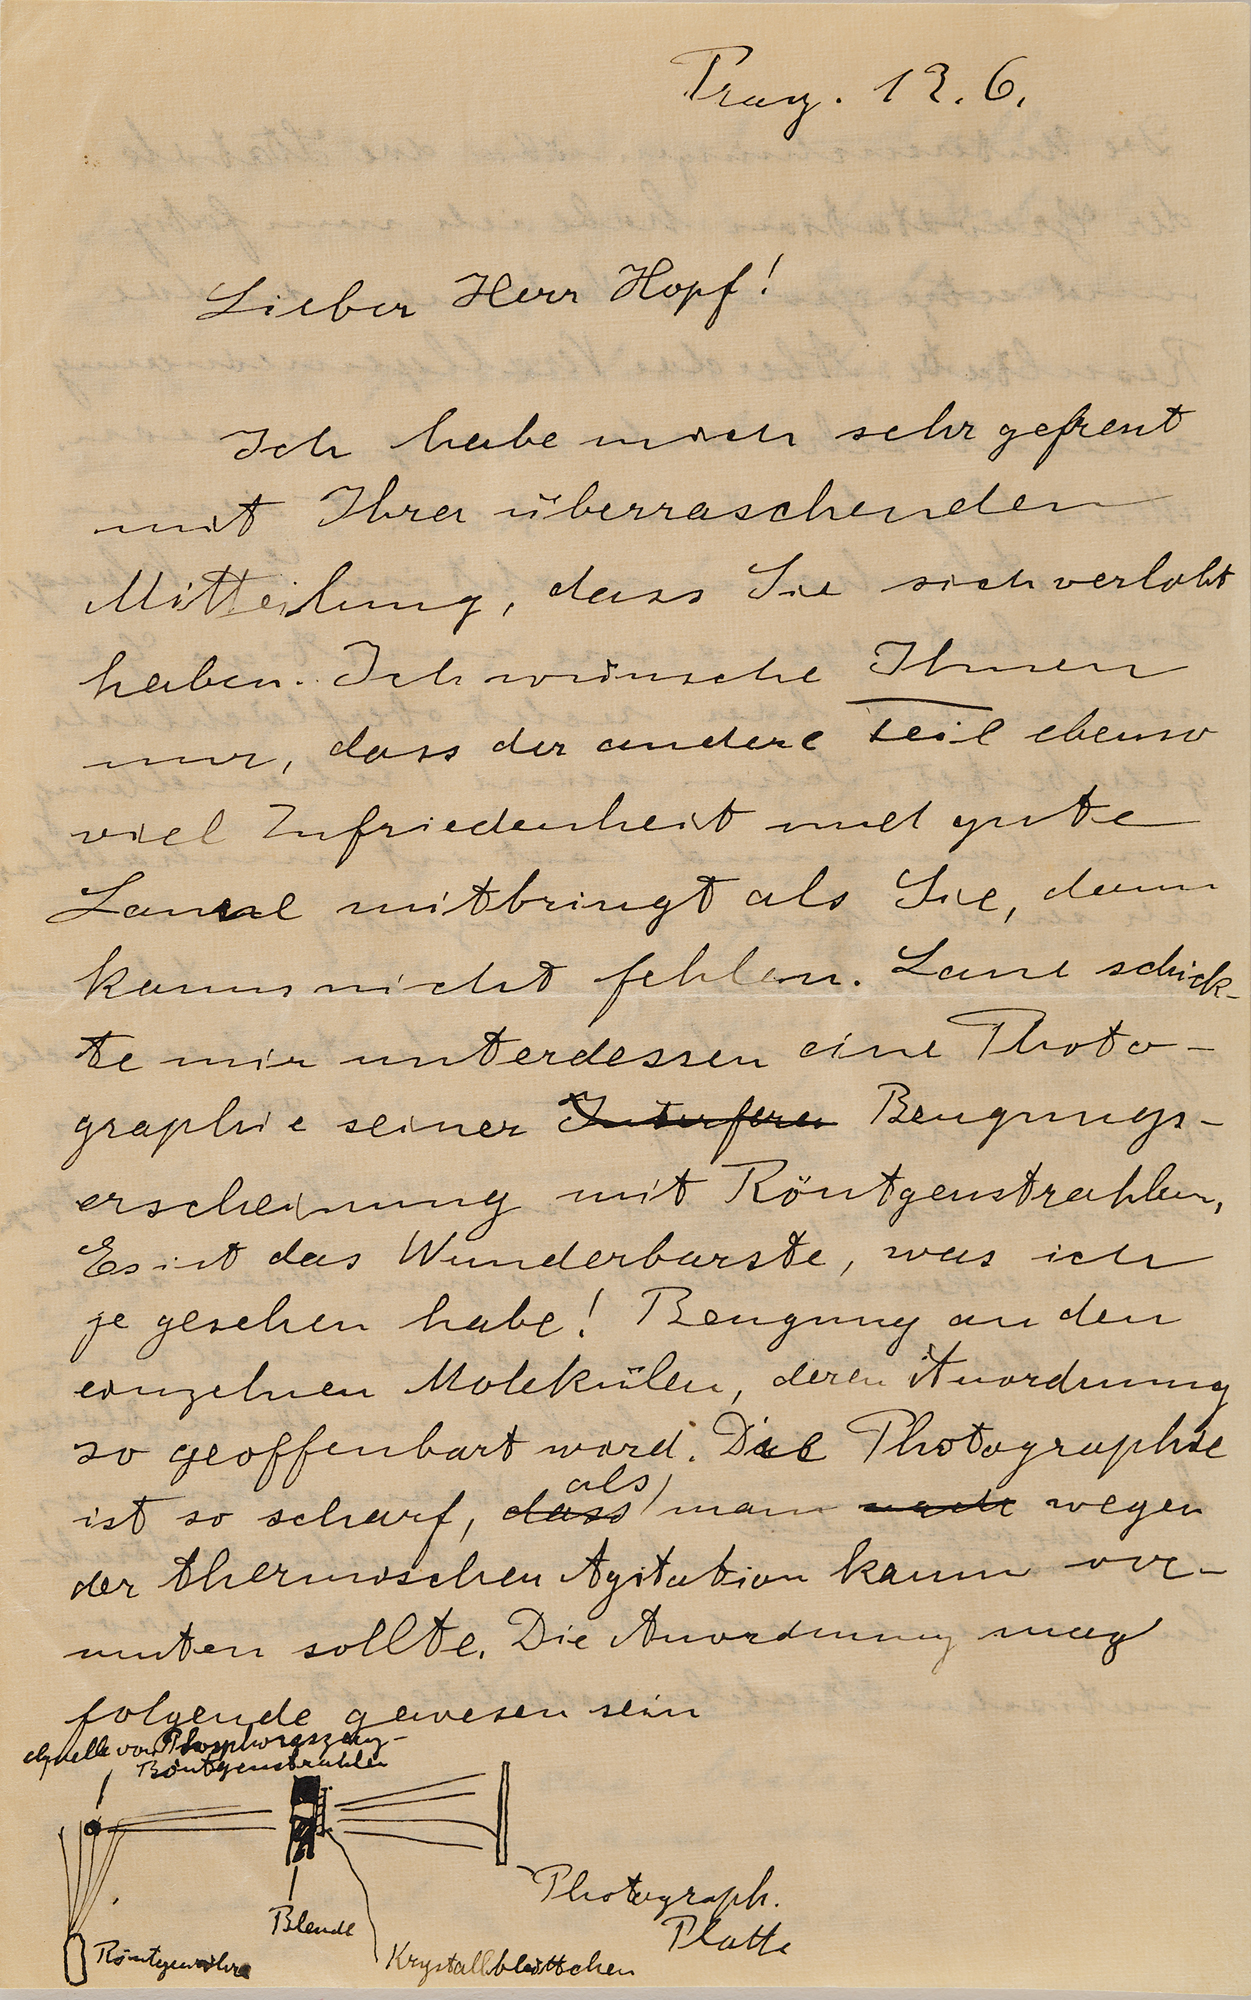 Prag. 12. 6.
Lieber Herr Hopf!
Ich habe mich sehr gefreut
mit Ihrer überraschenden
Mitteilung, dass Sie sich verlobt
haben. Ich wünsche Ihnen
nur, dass der andere Teil ebenso
viel Zufriedenheit und gute
Laune mitbringt als Sie, dann
kanns nicht fehlen. Laue schick-
te mir unterdessen eine Photo-
graphie seiner Interferen Beugungs-
erscheinung mit Röntgenstrahlen,
Es ist das Wunderbarste, was ich
je gesehen habe! Beugung an den
einzelnen Molekülen, deren Anordnung
so geoffenbart wird. Die Photographie
als
ist so scharf, dass man nach wegen
der thermischen Agitation kaum ver-
muten sollte. Die Anordnung mag
folgende gewesen sein
Quelle von
Röntgenstrahlen
Blende
Photograph.
Platte
Röntgenröhre
Krystallblättchen